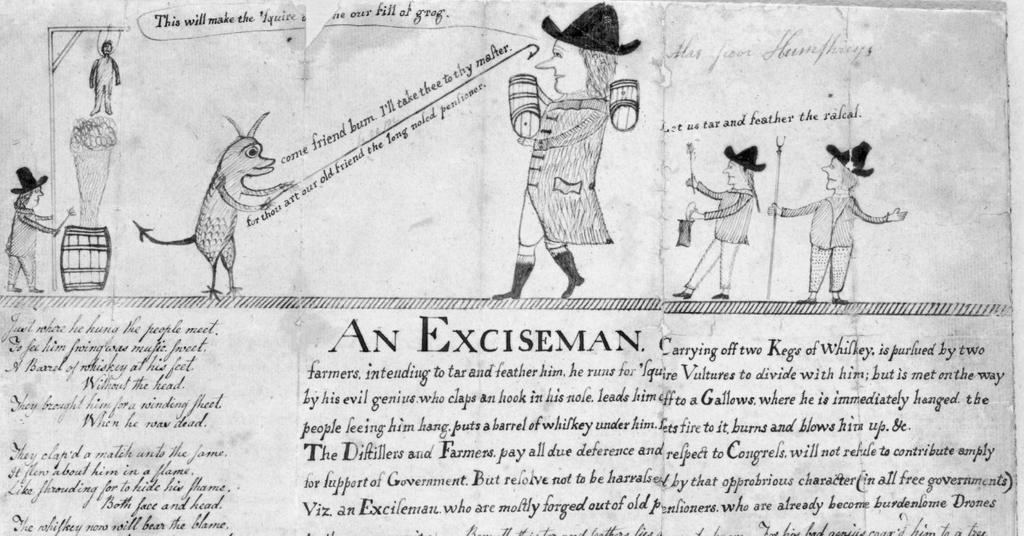 This will make the 'Squire me our fill of grog.
come friend bum. I'll take thee to thy maſter.
for thou art our old friend the long noſed penſioner.
Alas poor Humphreys
Let us tar and feather the raſcal.
Just where he hung the people meet.
To ſee him ſwing was muſic ſweet.
A Barrel of whiſkey at his feet.
Without the head.
They brought him for a winding ſheet.
When he was dead.
They clap'd a match unto the ſame.
It flew about him in a flame.
Like ſhrouding for to hide his ſhame.
Both face and head.
The whiſkey now will bear the blame.
AN EXCISEMAN.
Carrying off two Kegs of Whiſkey, is purſued by two
farmers, intending to tar and feather him, he runs for 'Squire Vultures to divide with him; but is met on the way
by his evil genius, who claps an hook in his noſe, leads him off to a Gallows, where he is immediately hanged. the
people ſeeing him hang, puts a barrel of whiſkey under him, ſets fire to it, burns and blows him up. &c.
The Diſtillers and Farmers, pay all due deference and reſpect to Congreſs, will not refuſe to contribute amply
for ſupport of Government. But reſolve not to be harraſsed by that opprobrious character (in all free governments)
Viz. an Exciſeman, who are moſtly forged out of old penſioners, who are already become burdenſome Drones